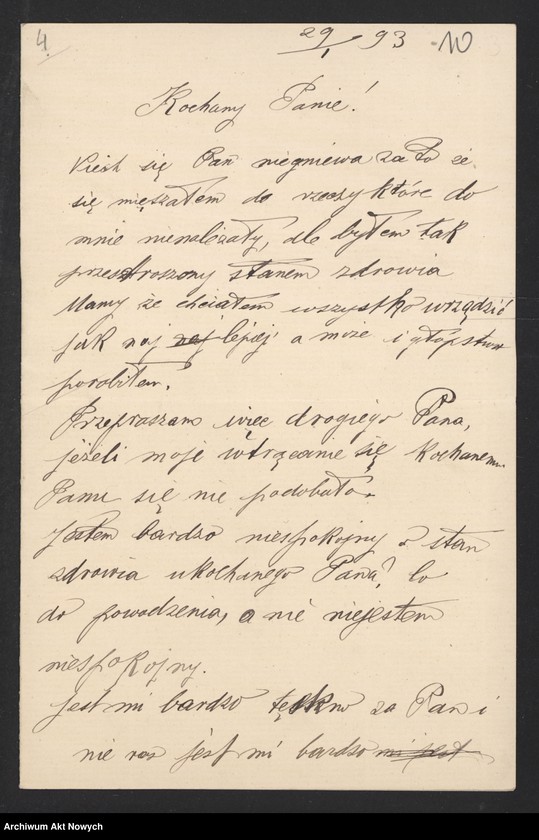 4.
29/1 93 10
Kochany Panie!
Niech się Pan niegniewa za to że
się mięszałem do rzeczy które do
mnie nienależały, ale byłem tak
przestroszony stanem zdrowia
Mamy że chciałem wszystko urządzić
jak naj naj lepiej a może i głupstwa
porobiłem.
Przepraszam więc drogiego Pana,
jeżeli moje wtrącanie się kochanemu
Panu się nie podobało.
Jestem bardzo niespokojny o stan
zdrowia ukochanego Pana, Co
do powodzenia, o nie niejestem
niespokojny.
Jest mi bardzo tęskno za Pan i
nie raz jest mi bardzo mi jest
Archiwum Akt Nowych